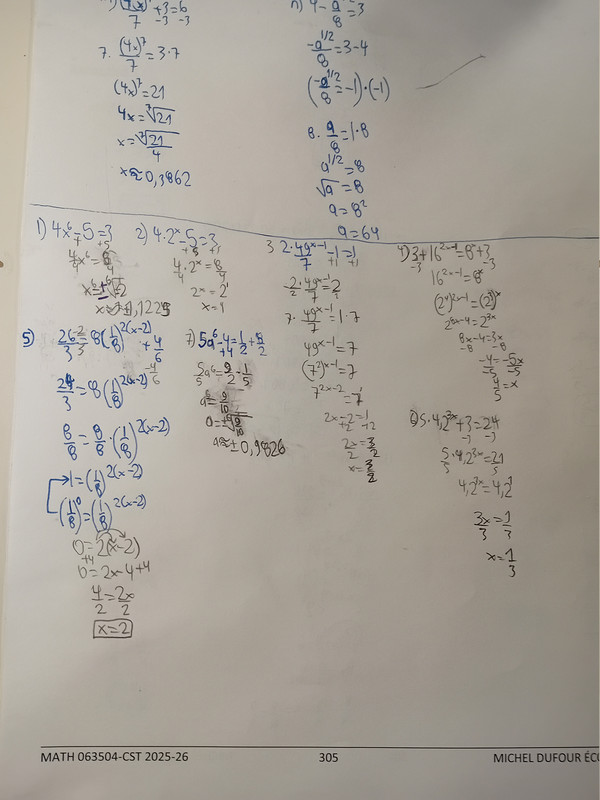 (4x)⁷/7 +3=6
-3 -3
7. (4x)⁷/7 = 3·7
(4x)⁷=21
4x=⁷√21
x=⁷√21/4
x≈0,3862
n) 4-a^(1/2)/8=3
-a^(1/2)/8=3-4
(-a^(1/2)/8=-1)·(-1)
8· a/8=1·8
a^(1/2)=8
√a=8
a=8²
a=64
1) 4x⁶-5=3
+5 +5
4x⁶/4=8/4
2) 4·2ˣ-5=3
4/4·2ˣ=8/4
2ˣ=2¹
x=1
3 2·49^(x-1)/7-1=1
+1 +1
2/2·49^(x-1)/7=2/2
7·49^(x-1)/7=1·7
49^(x-1)=7
(7²)^(x-1)=7
7^(2x-2)=7¹
2x-2=1
+2 +2
2x/2=3/2
x=3/2
4) 3+16^(2x-1)=8ˣ+3
-3 -3
16^(2x-1)=8ˣ
(2⁴)^(2x-1)=(2³)ˣ
2^(8x-4)=2^(3x)
8x-4=3x
-8 -8
-4/-5=-5x/-5
4/5=x
5) 26/3-2/3=8(1/8)^(2(x-2))+4/6
-4/6
24/3=8(1/8)^(2(x-2))
8/8=8/8·(1/8)^(2(x-2))
1=(1/8)^(2(x-2))
(1/8)⁰=(1/8)^(2(x-2))
0=2(x-2)
+4
0=2x-4+4
4/2=2x/2
x=2
7) 5a⁶-4=1/2+8/2
+4
5a⁶/5=9/2·1/5
a⁶=9/10
a=±⁶√9/10
a≈±0,9826
5·4,2^(3x)+3=24
-3 -3
5/5·4,2^(3x)=21/5
4,2^(3x)=4,2¹
3x/3=1/3
x=1/3
MATH 063504-CST 2025-26
305
MICHEL DUFOUR